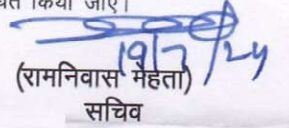 किया जाए।
19/7/24
(रामनिवास मेहता)
सचिव